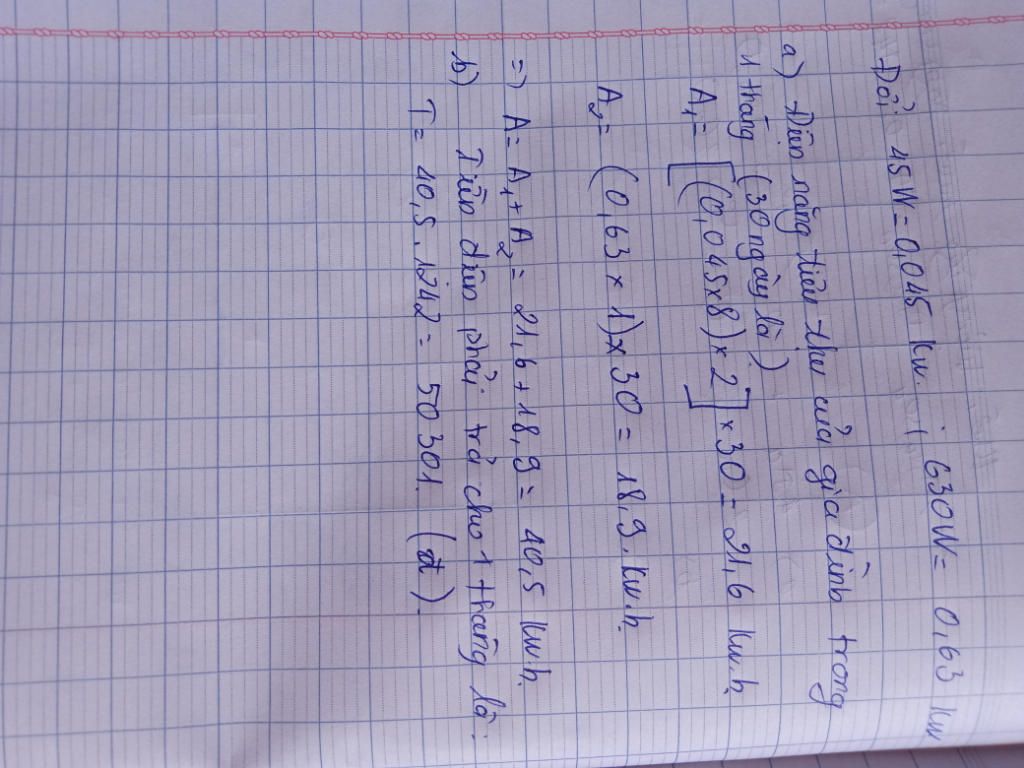 Đổi: 45W = 0,045 Kw. ; 630W = 0,63 Kw
a) Điện năng tiêu thụ của gia đình trong
1 tháng (30 ngày là)
A₁ = [(0,045×8)×2]×30 = 21,6 Kw.h
A₂ = (0,63×1)×30 = 18,9.Kw.h
=> A = A₁ + A₂ = 21,6 + 18,9 = 40,5 Kw.h.
b) Tiền điện phải trả cho 1 tháng là:
T = 40,5.1242 = 50301. (đ).